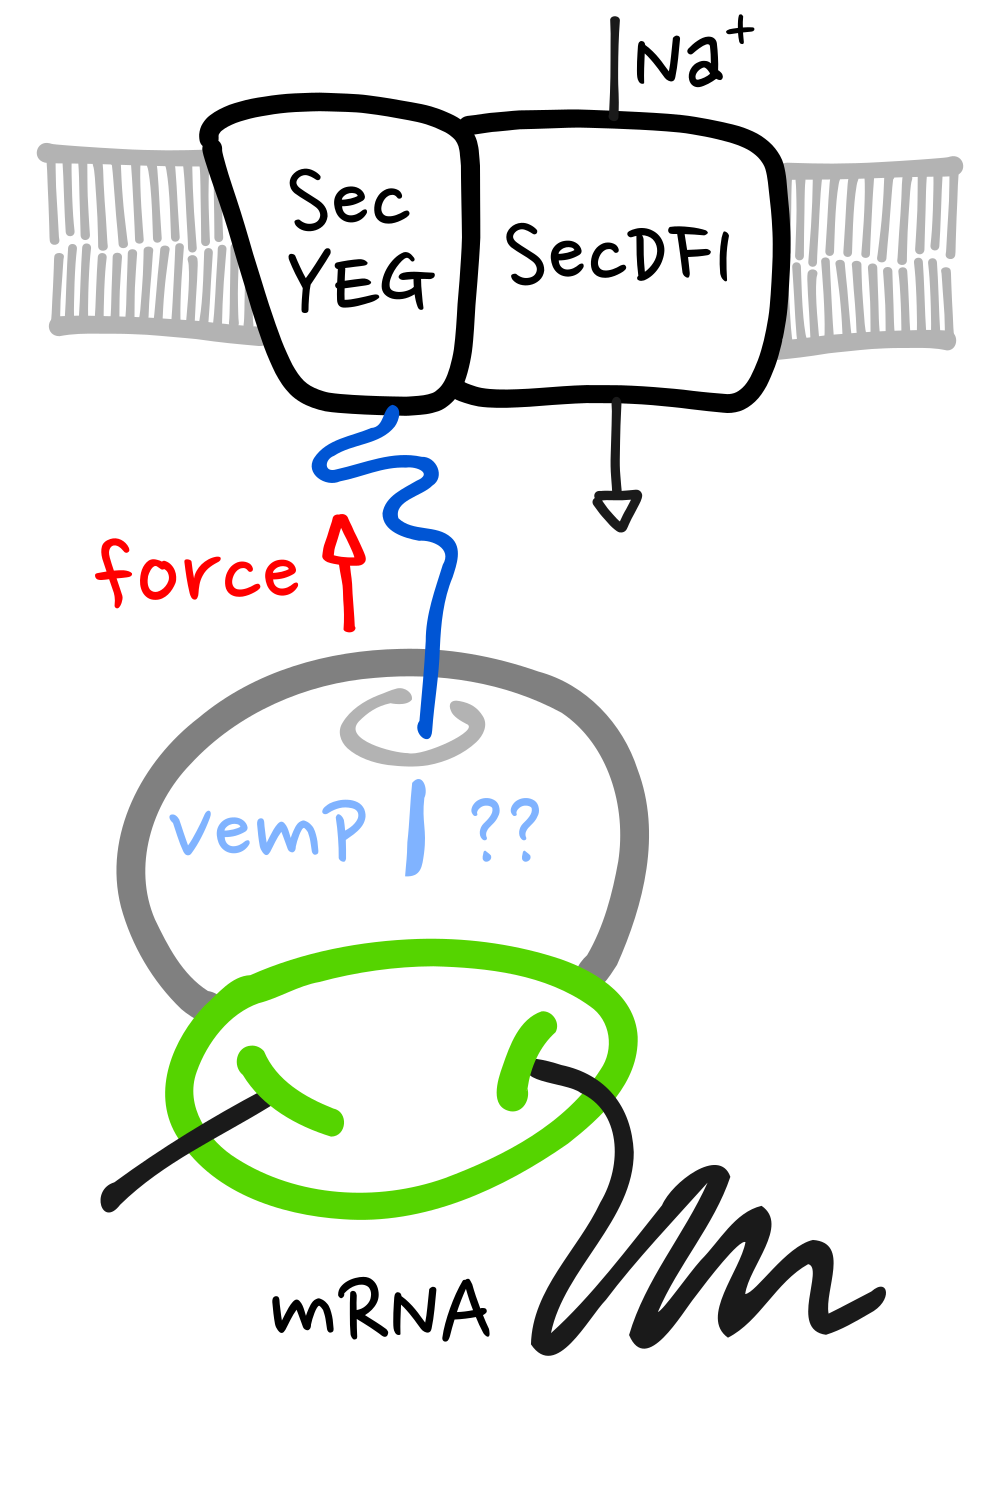 Na⁺
Sec
YEG
SecDF1
force
vemP ??
mRNA